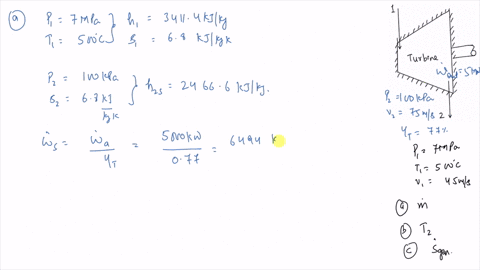 ⓐ P₁ = 7MPa } h₁ = 3411.4 KJ/kg
T₁ = 500°C } s₁ = 6.8 KJ/kgK
P₂ = 100 kPa } h₂s = 2466.6 KJ/kg.
s₂ = 6.8 KJ/kgK
Ẇs = Ẇa / ηT = 5000KW / 0.77 = 6494 K
1
Turbine
P₂ = 100 kPa
V₂ = 75 m/s 2
ηT = 77%
P₁ = 7MPa
T₁ = 500°C
V₁ = 45m/s
ⓐ ṁ
ⓑ T₂
ⓒ Ṡgen.